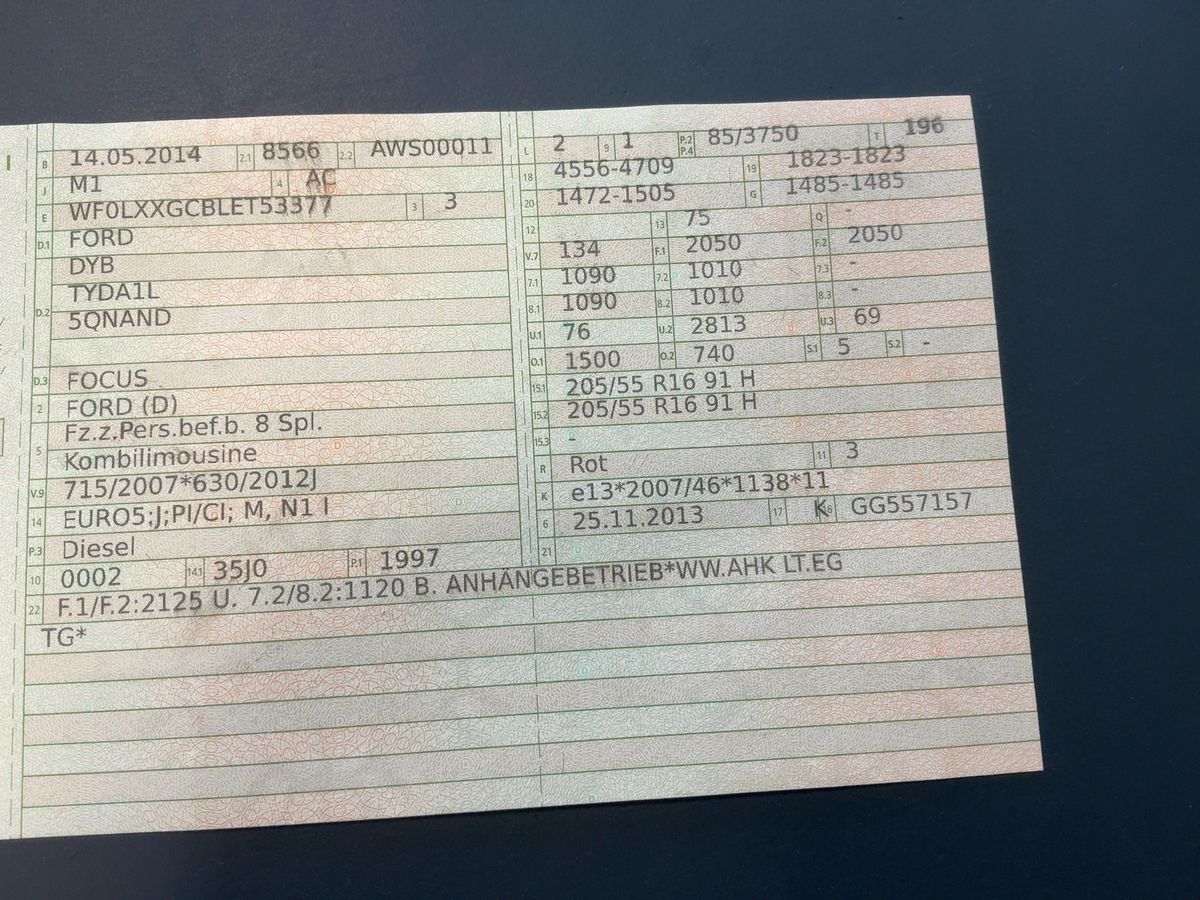 B 14.05.2014 2.1 8566 2.2 AWS00011
J M1 4 AC
E WF0LXXGCBLET53377 3 3
D.1 FORD
DYB
D.2 TYDA1L
5QNAND
D.3 FOCUS
2 FORD (D)
5 Fz.z.Pers.bef.b. 8 Spl.
Kombilimousine
V.9 715/2007*630/2012J
14 EURO5;J;PI/CI; M, N1 I
P.3 Diesel
10 0002 14.1 35J0 P.1 1997
L 2 9 1 P.2 P.4 85/3750 T 196
18 4556-4709 19 1823-1823
20 1472-1505 G 1485-1485
12 13 75 Q -
V.7 134 F.1 2050 F.2 2050
7.1 1090 7.2 1010 7.3 -
8.1 1090 8.2 1010 8.3 -
U.1 76 U.2 2813 U.3 69
O.1 1500 O.2 740 S.1 5 S.2 -
15.1 205/55 R16 91 H
15.2 205/55 R16 91 H
15.3 -
R Rot 11 3
K e13*2007/46*1138*11
6 25.11.2013 17 K 16 GG557157
21
22 F.1/F.2:2125 U. 7.2/8.2:1120 B. ANHÄNGEBETRIEB*WW.AHK LT.EG
TG*